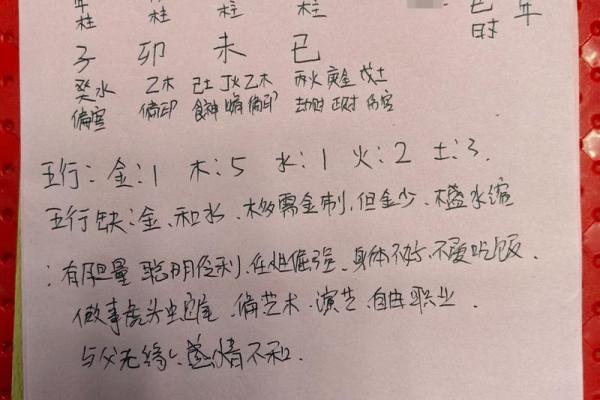 年 柱 柱 柱 巳时 年
子 卯 未 巳
癸水 乙木 己土 丁火 乙木 丙火 庚金 戊土
偏官 偏印 食神 偏印 劫财 正财 伤官
五行：金：1 木：5 水：1 火：2 土：3.
五行缺：金、和水、木多需金制，但金少、木盛水缩
：有胆量 聪明伶利、任性倔强、身体不好、不爱吃饭.
做事虎头蛇尾、偏艺术、演艺、自由职业.
与父无缘、感情不和.